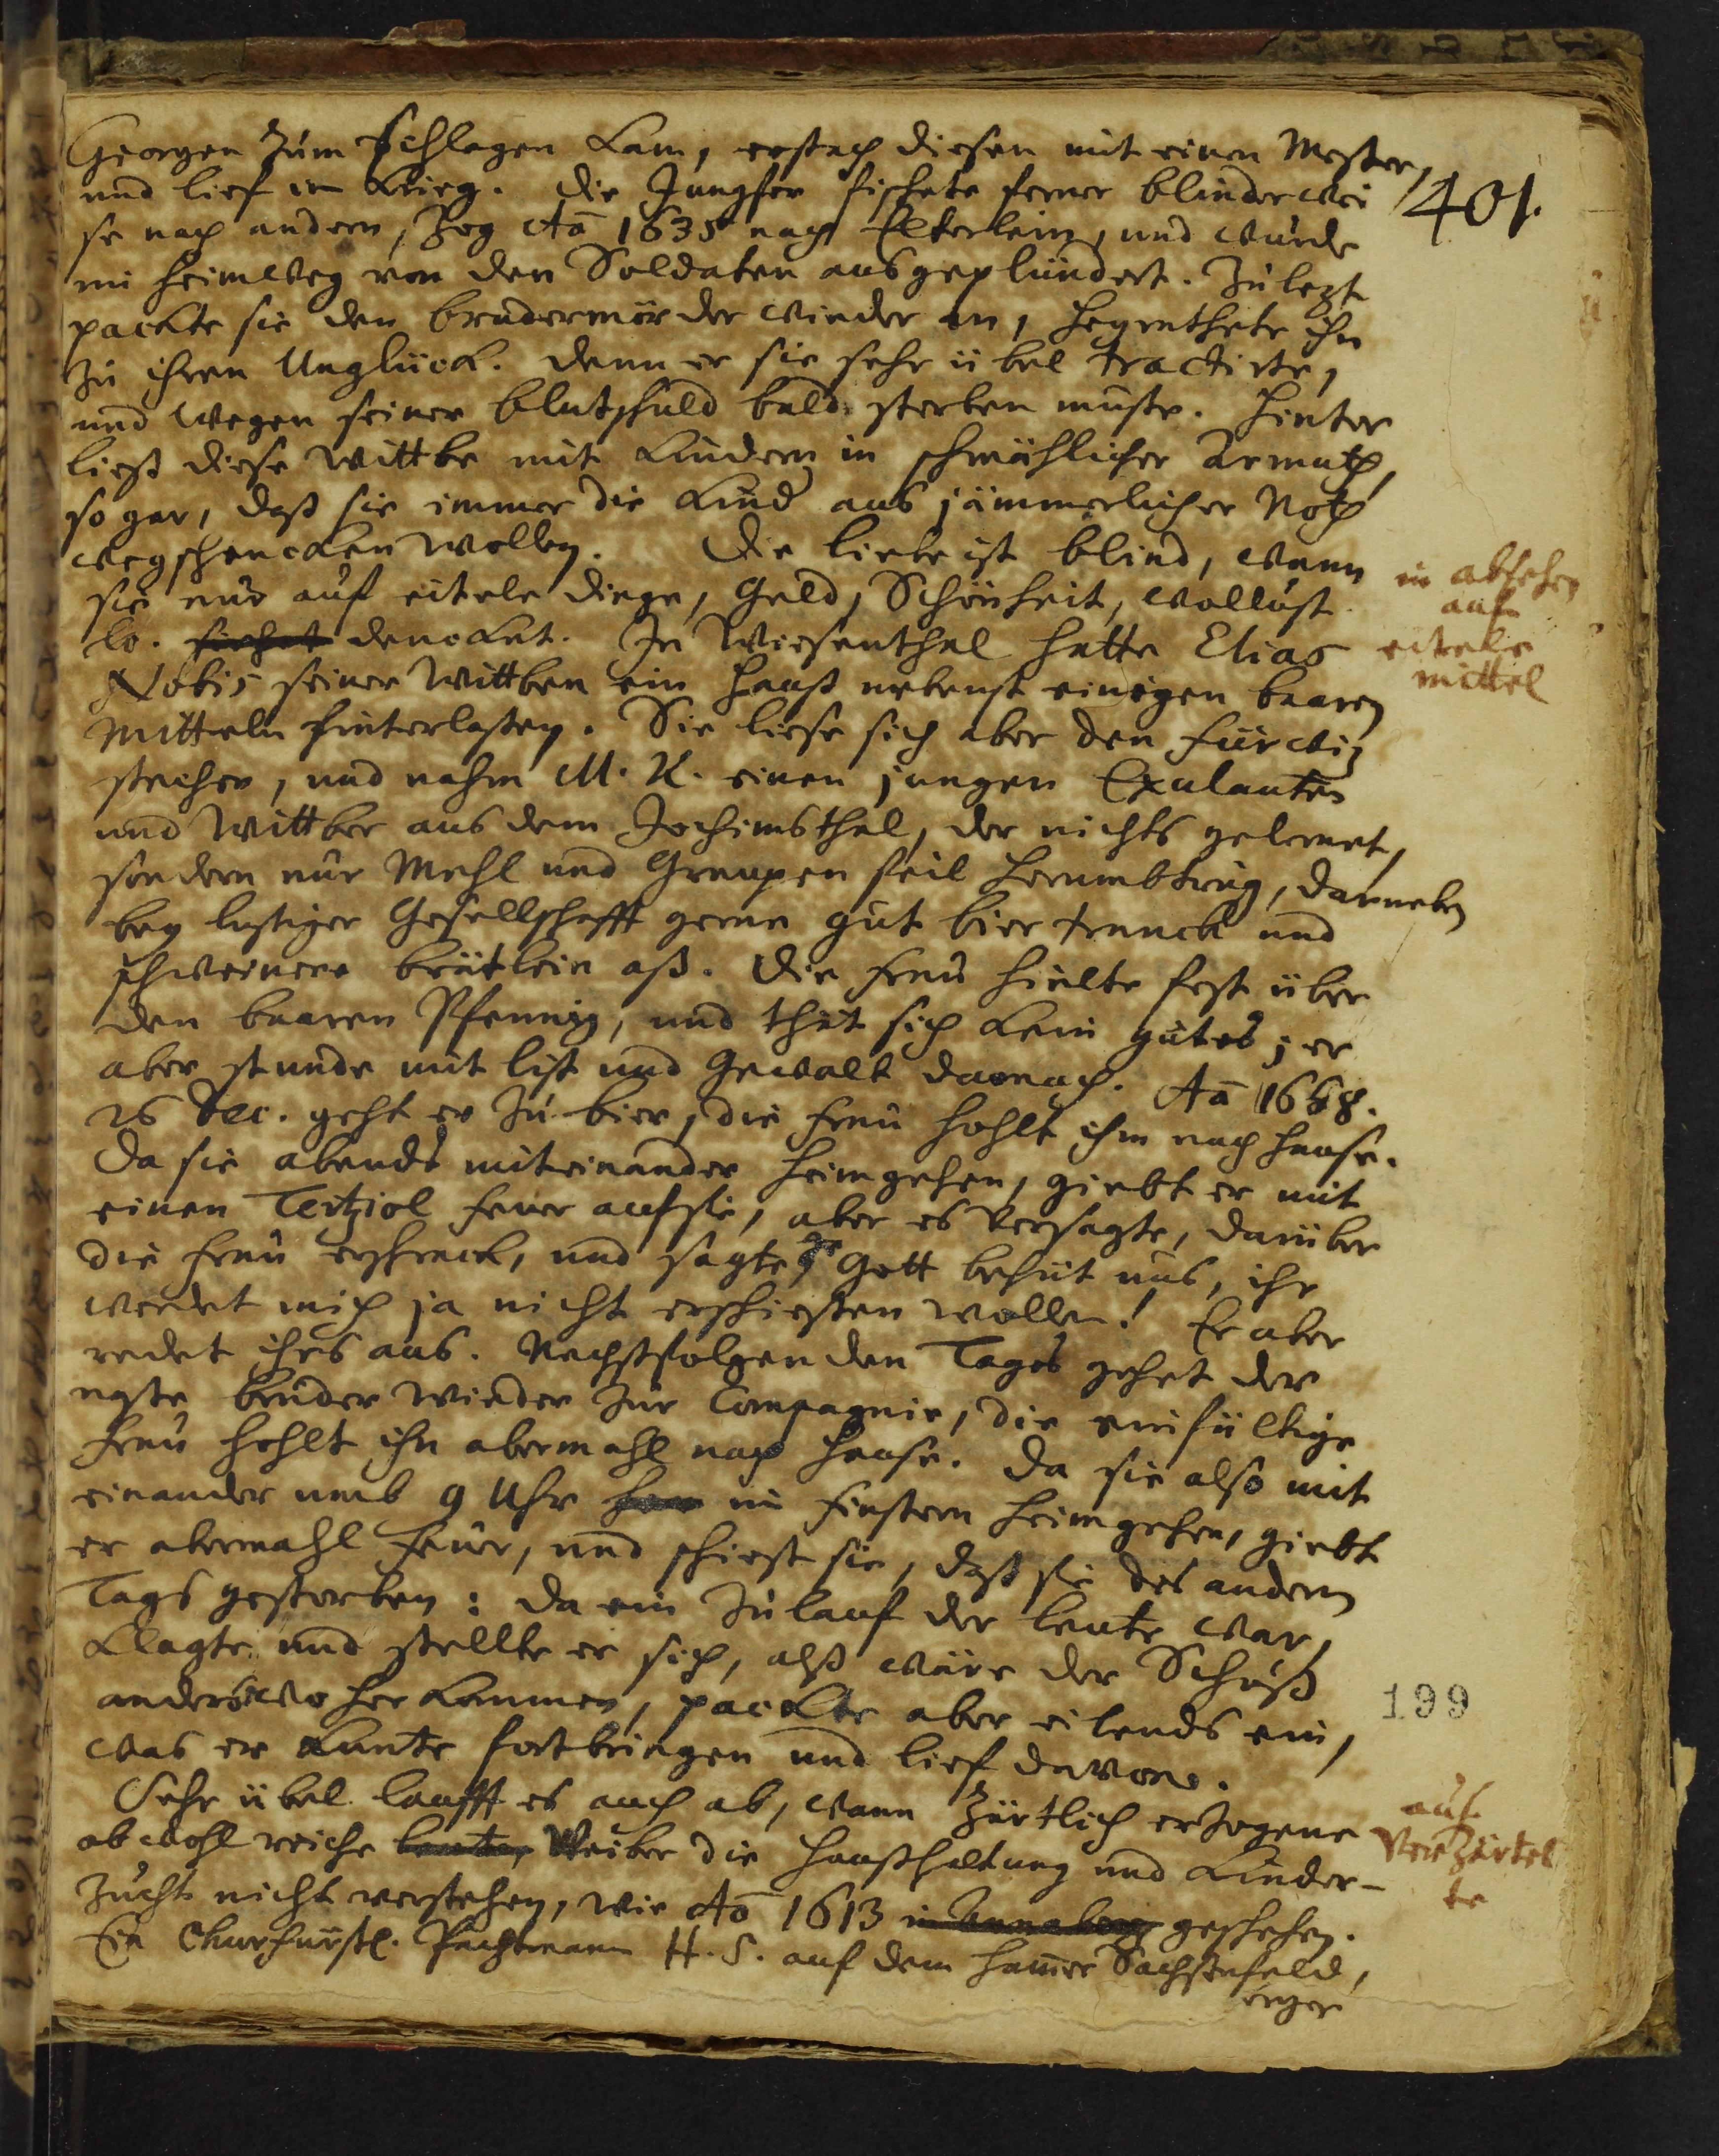 401.
Georgen zum Schlagen kam, erstach diesen mit einen Messer,
und lief in Krieg. Die Jungfer fischete ferner blinder wei
se nach andern, zog Aõ 1635 nach Elterlein, und wurde
im heimweg von den Soldaten ausgeplündert. Zu lezt
packte sie den brudermörder wieder an, heyrathete ihn
zu ihren Unglück. denn er sie sehr übel tractirte,
und wegen seiner blutschuld bald sterben muste. Hinter
ließ diese Wittbe mit Kindern in schmählicher Armuth,
so gar, daß sie immer die Kind aus jämmerlicher Noth
wegschencken wollen. Die liebe ist blind, wann
sie nur auf eitele dinge, Geld, Schönheit, Wollust
lo. siehet denckt. In Wiesenthal hatte Elias
Nobis seiner Wittben ein Hauß nebenst einigen baaren
Mitteln hinterlassen. Sie liese sich aber den fürwiz
stechen, und nahm M. K. einen jungen Exulanten
und Wittber aus dem Jochimsthal, der nichts gelernet,
sondern nur Mehl und Graupen feil herumbtrug, darneben
bey lustiger Gesellschafft gerne gut bier trunck und
schweinere brätlein aß. Die frau hielte fest über
den baaren Pfennig, und thät sich kein gutes; er
aber stunde mit list und Gewalt darnach. Aõ 1668.
26 Dec. geht er zu bier, die frau hohlt ihm nach hause.
Da sie abends miteinander heimgehen, giebt er mit
einen Tertziol feuer auf sie, aber es versagte, darüber
die frau erschrack, und sagte, Gott behüt uns, ihr
werdet mich ja nicht erschiessen wollen! Er aber
redet ihrs aus. Nechstfolgenden Tages gehet der
nasse bruder wieder zur Compagnie, die einfältige
frau hohlt ihn abermahl nach hause. Da sie also mit
einander umb 9 Uhr im finstern heimgehen, giebt
er abermahl feuer, und schiest sie, daß sie des andern
Tags gestorben: da ein Zulauf der leute war,
klagte und stellte er sich, alß wäre der Schuß
anderswo herkommen, packte aber eilends ein,
was er kunte fortbringen und lief davon.
Sehr übel laufft es auch ab, wann zärtlich erzogene
ob wohl reiche Weiber die haußhaltung und Kinder-
zucht nicht verstehen, wie Aõ 1613 in Annaberg geschehen.
Ein Churfürstl. Pachtmann H. S. auf dem Hammer Sachsenfeld,
in absehen
auf
eitele
mittel
199
auf
Verzärtel
te